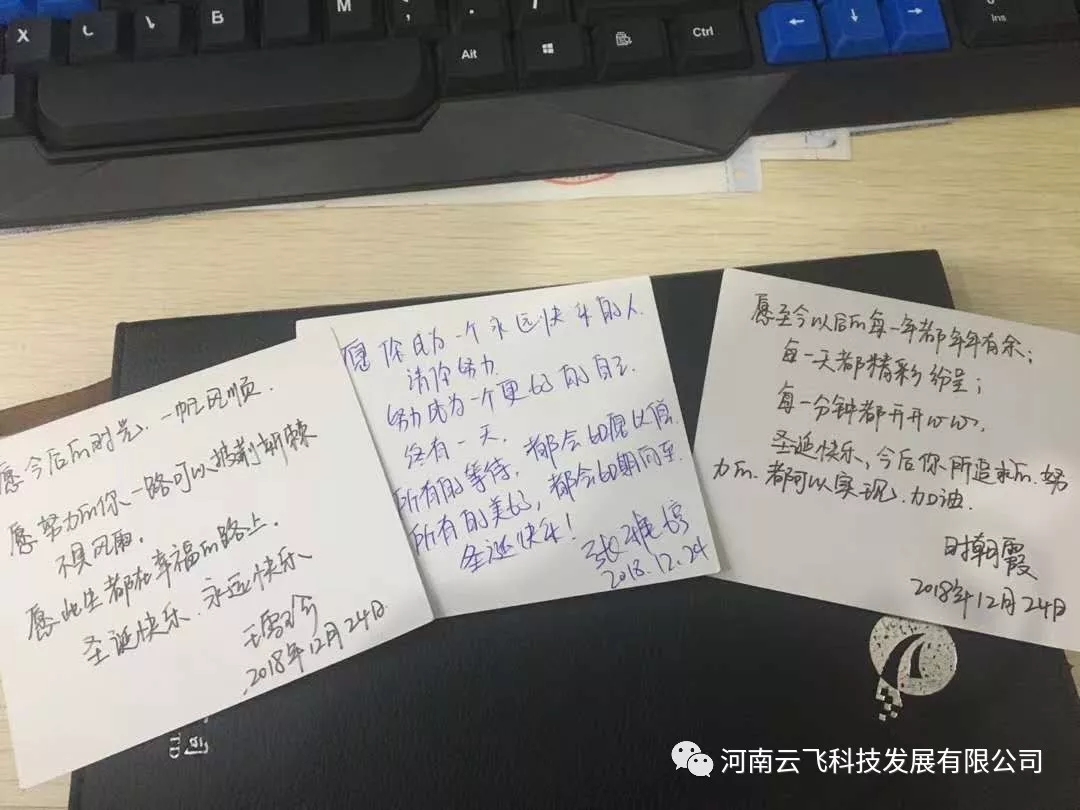 X
B
M
Alt
Ctrl
Ins
愿今后的时光，一帆风顺．
愿努力的你一路可以披荆斩棘
不具风雨．
愿此生都在幸福的路上．
圣诞快乐．永远快乐
2018年12月24日
愿你成为一个永远快乐的人．
请你努力．
努力成为一个更好的自己．
终有一天．
所有的等待，都会如愿以偿．
所有的美好，都会如期而至．
圣诞快乐！
张雅婷
2018.12.24
愿至今以后的每一年都年年有余；
每一天都精彩纷呈；
每一分钟都开开心心．
圣诞快乐，今后你所追求的．努
力的．都可以实现．加油．
时朝霞
2018年12月24日
TD
河南云飞科技发展有限公司